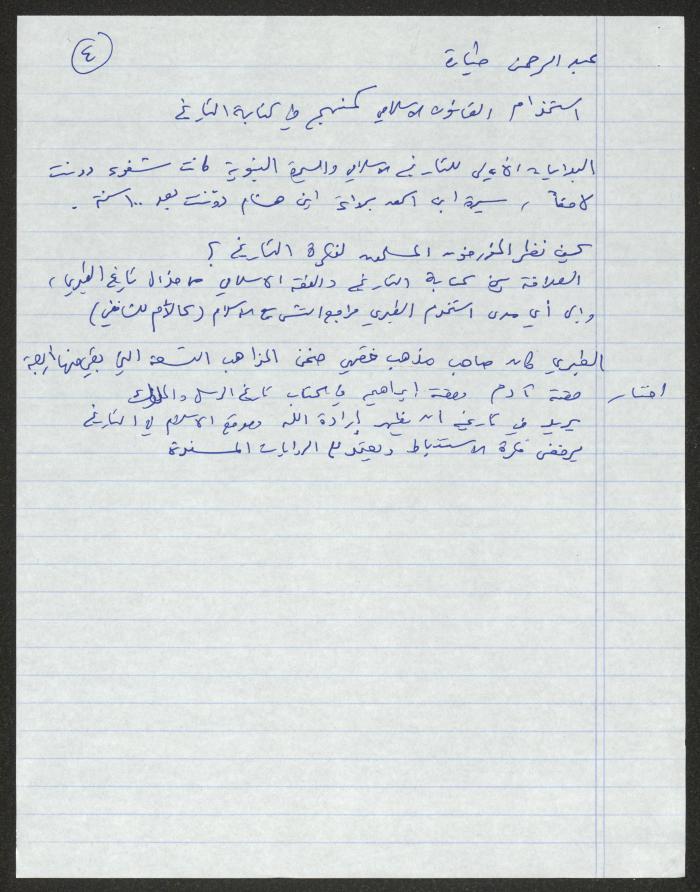 ٤
عبد الرحمن طيارة
استخدام القانون الاسلامي كمنهج في كتابة التاريخ
البدايات الأولى للتاريخ الاسلامي والسيرة النبوية كانت شفوية ودونت
لاحقاً، سيرة ابن اسحق برواية ابن هشام دوّنت بعد ١٠٠ سنة.
كيف نظر المؤرخون المسلمون لفكرة التاريخ ؟
العلاقة بين كتابة التاريخ والفقه الاسلامي من خلال تاريخ الطبري،
والى أي مدى استخدم الطبري مراجع التشريع الاسلام (كالأم للشافعي)
الطبري كان صاحب مذهب فقهي ضمن المذاهب التسعة التي بقي منها أربعة
اختار قصة آدم وقصة ابراهيم في كتاب تاريخ الرسل والملوك
يريد في تاريخه أن يظهر إرادة الله وموقع الاسلام في التاريخ
يرفض فكرة الاستنباط ويعتمد على الروايات المسندة